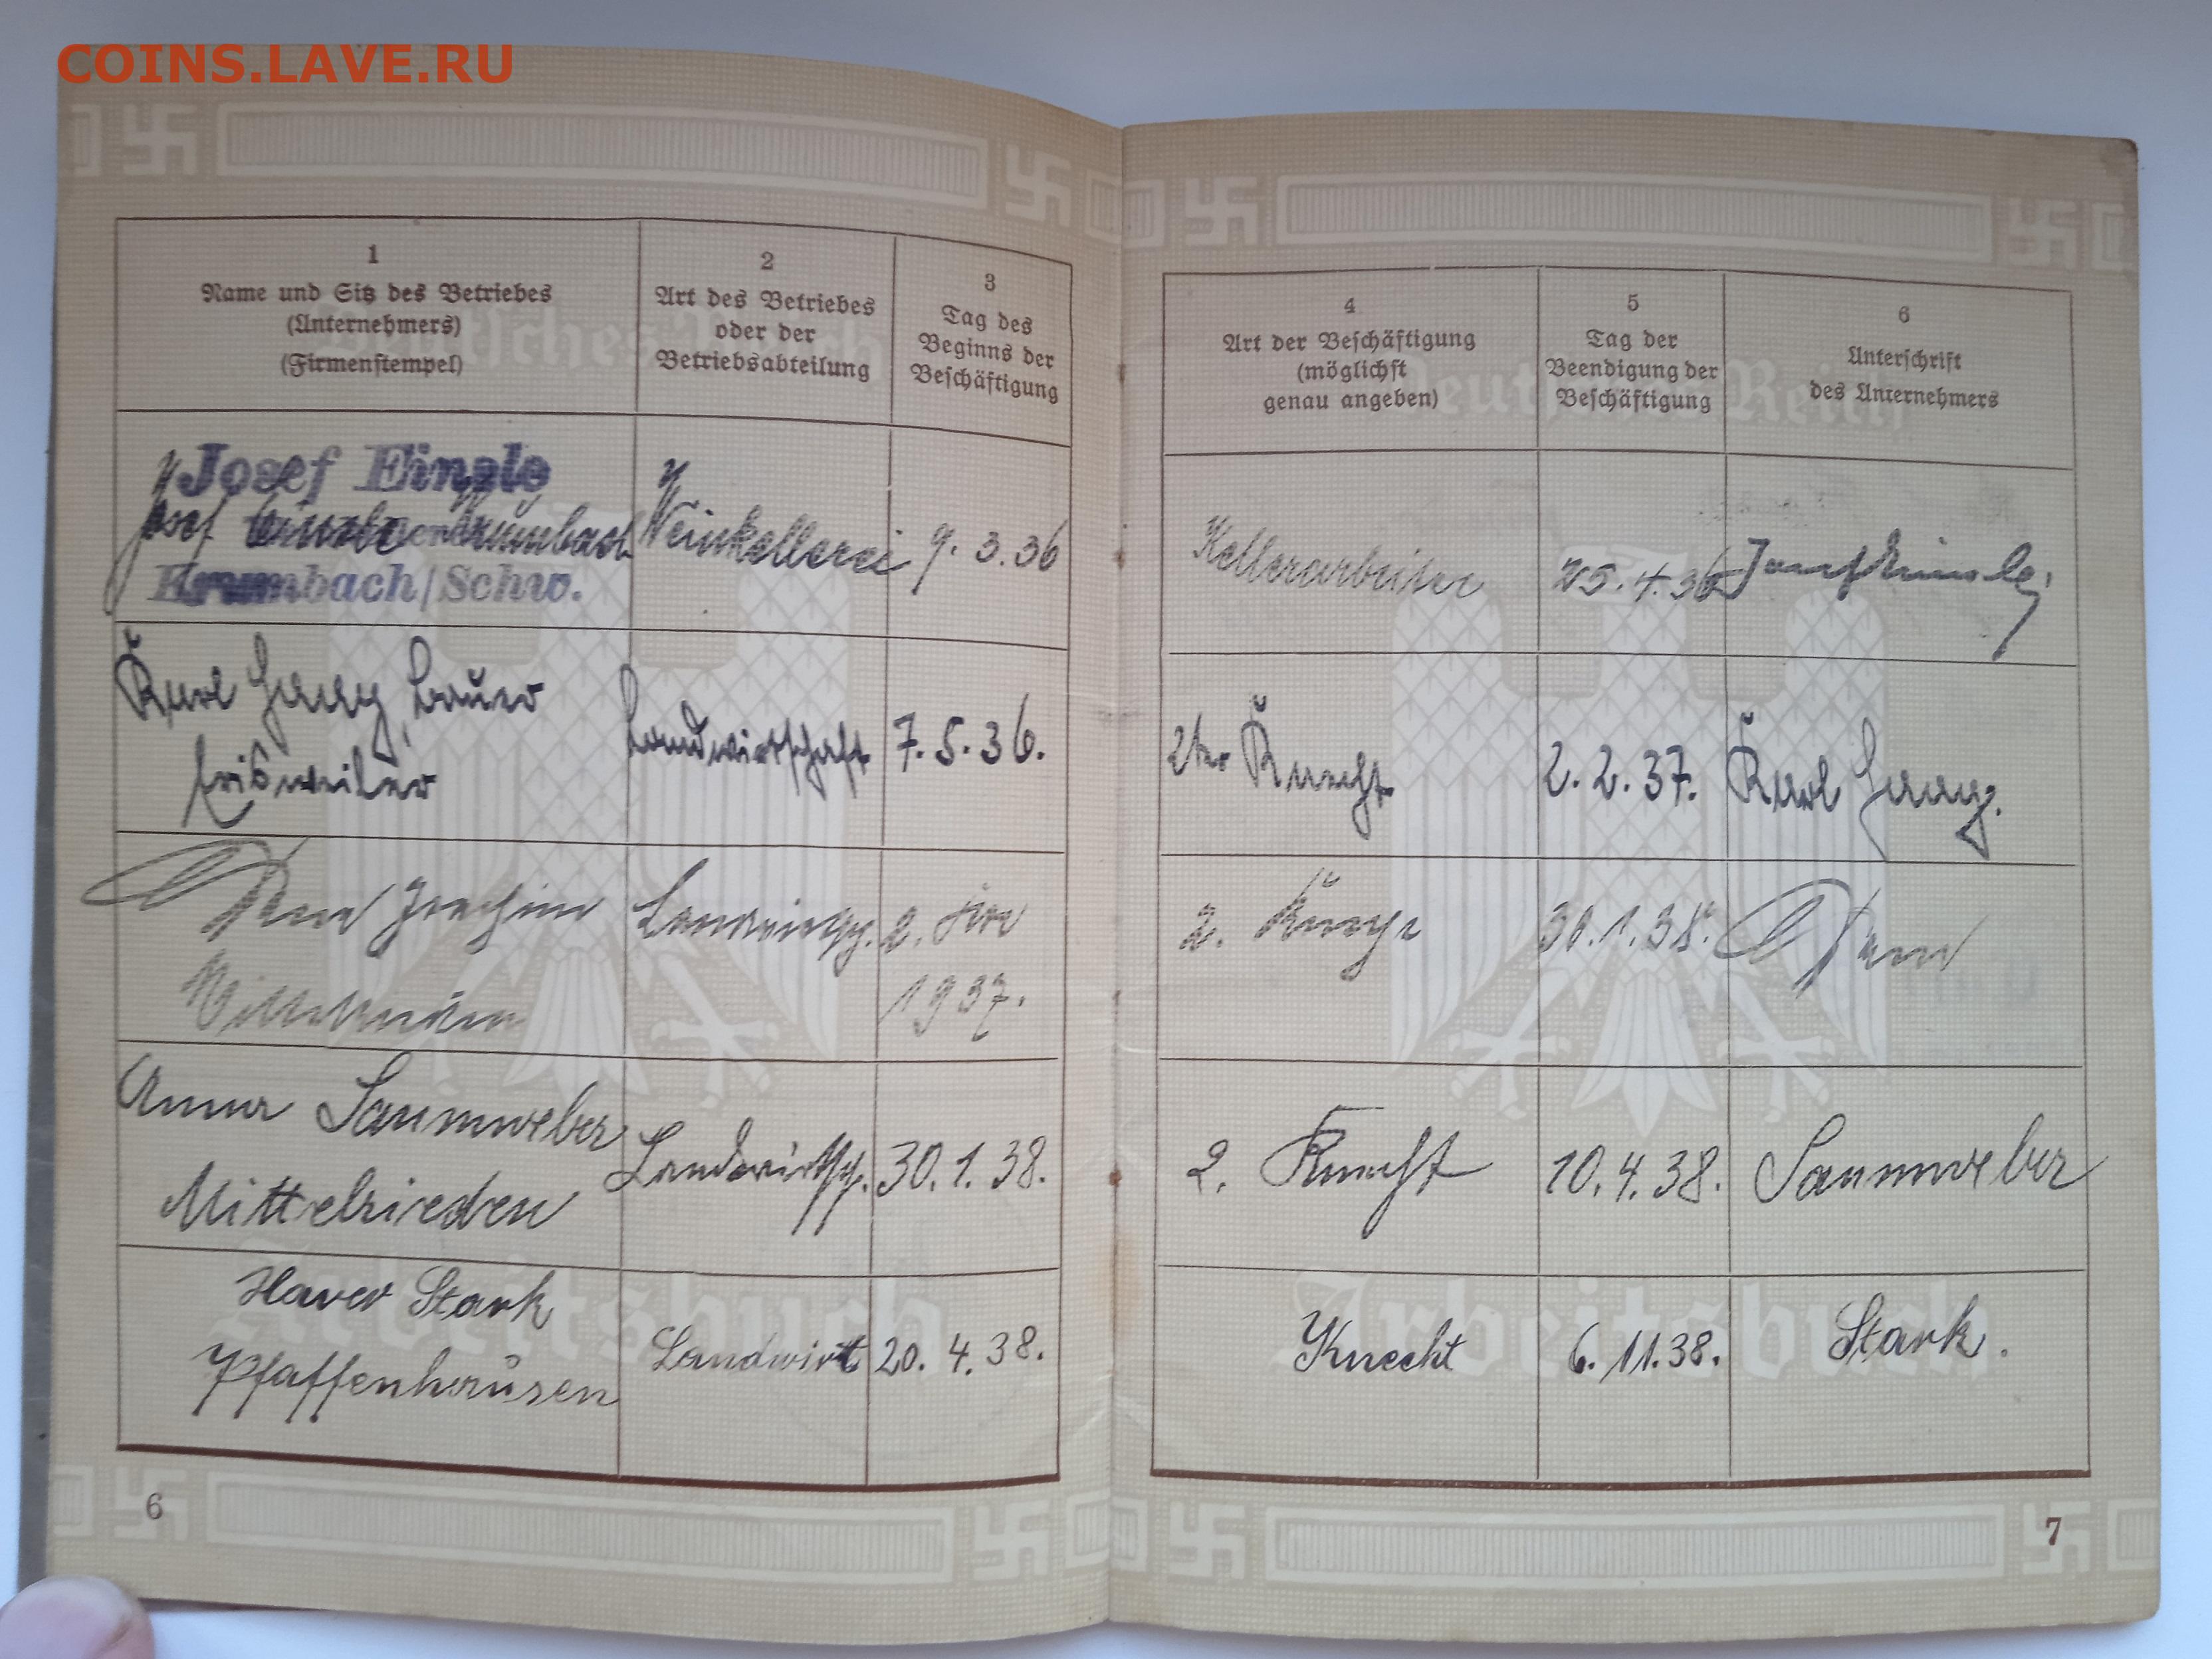 COINS.LAVE.RU
1
Name und Sitz des Betriebes
(Unternehmers)
(Firmenstempel)
2
Art des Betriebes
oder der
Betriebsabteilung
3
Tag des
Beginns der
Beschäftigung
Josef Einsle
Josef Krumbach
Krumbach/Schw.
Weinkellerei
9. 3. 36
Karl Haag, Bauer
Landwirtschaft
7. 5. 36.
Joachim
2.
1937.
Anna Saumweber
Mittelrieden
30. 1. 38.
Xaver Stark
Pfaffenhausen
Landwirt
20. 4. 38.
6
4
Art der Beschäftigung
(möglichst
genau angeben)
5
Tag der
Beendigung der
Beschäftigung
6
Unterschrift
des Unternehmers
Kellerarbeiter
25. 4. 36
2ter Knecht
2. 2. 37.
Karl Haag.
2. Knecht
30. 1. 38.
2. Knecht
10. 4. 38.
Saumweber
Knecht
6. 11. 38.
Stark.
7
Deutsches Reich
Arbeitsbuch
Deutsches Reich
Arbeitsbuch